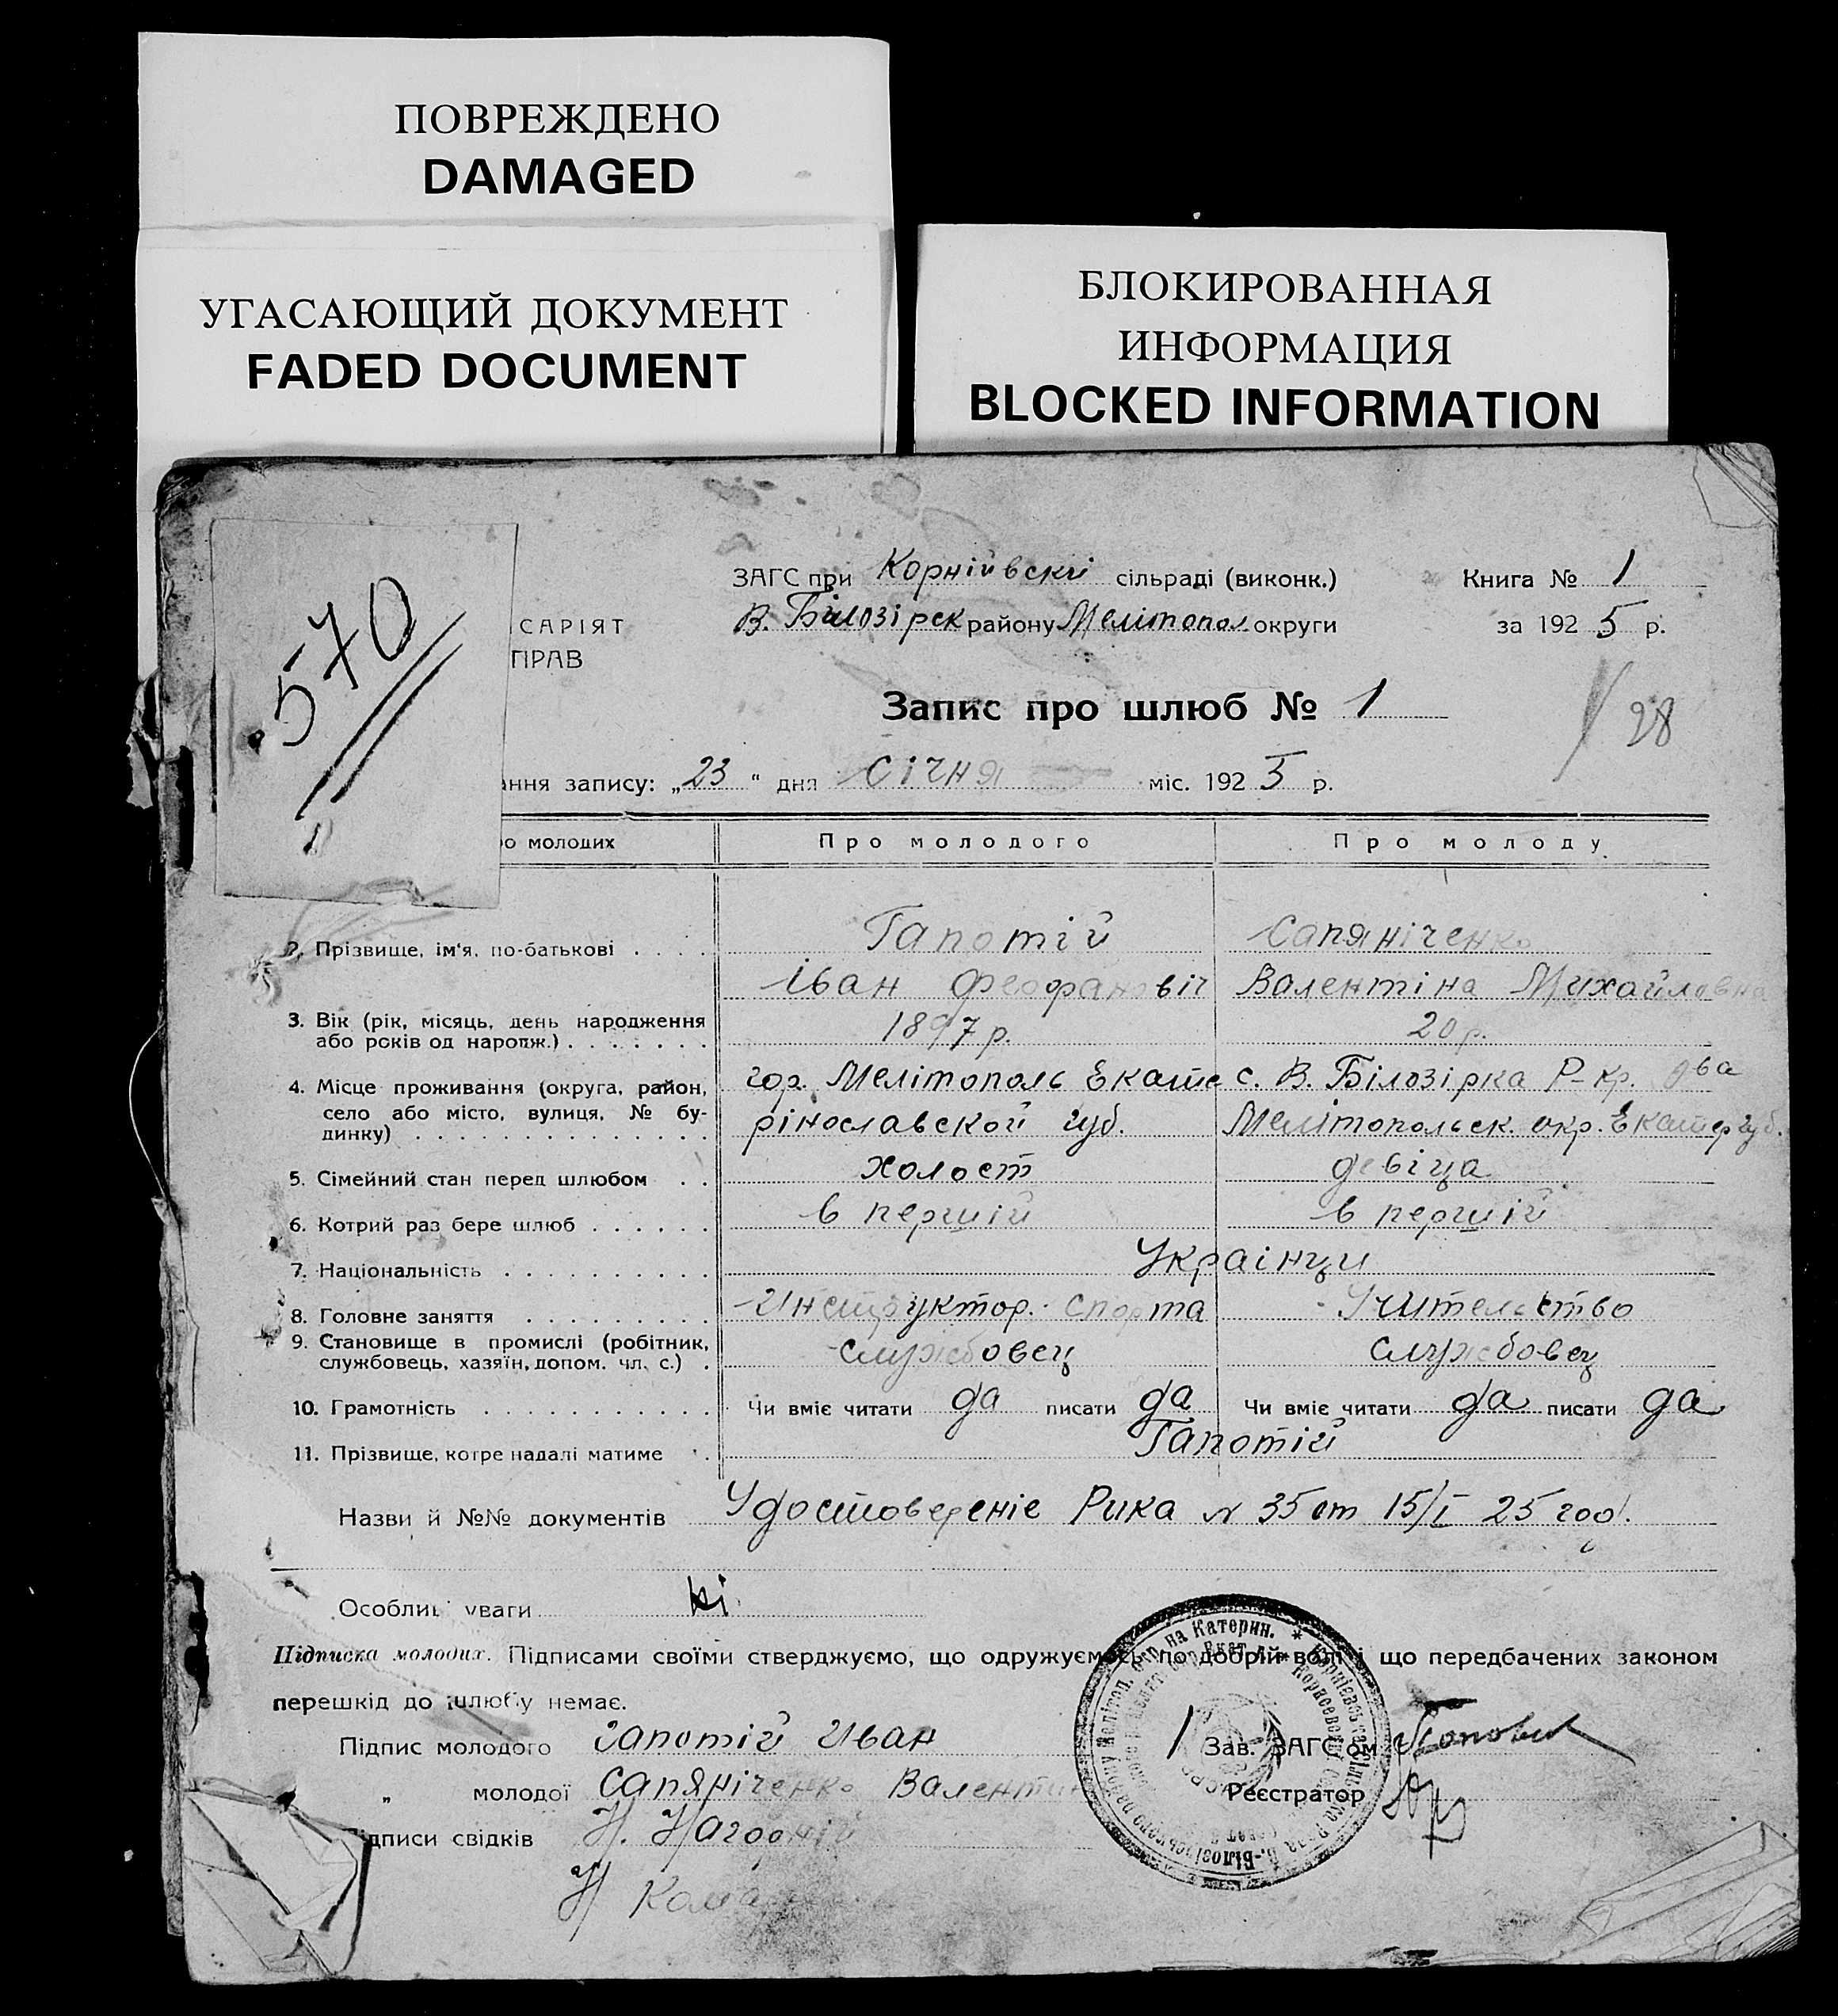 ПОВРЕЖДЕНО
DAMAGED
УГАСАЮЩИЙ ДОКУМЕНТ
FADED DOCUMENT
БЛОКИРОВАННАЯ
ИНФОРМАЦИЯ
BLOCKED INFORMATION
570
САРІЯТ
ПРАВ
ЗАГС при Корнійвскій сільраді (виконк.)
В. Білозірск району Мелітопол округи
Книга № 1
за 1925 р.
Запис про шлюб № 1
28
ання запису: „23“ дня Січня міс. 1925 р.
ро молодих
Про молодого
Про молоду
2. Прізвище, ім'я, по-батькові . . . .
Гапотій
Сапяніченко
Іван Феофановіч
Валентіна Мухайловна
3. Вік (рік, місяць, день народження
або років од народж.) . . . . . . .
1897 р.
20 р.
4. Місце проживання (округа, район,
село або місто, вулиця, № бу-
динку) . . . . . . . . . . . . . .
гор. Мелітополь Екате
рінославской губ.
с. В. Білозірка Р-кр.
Мелітопольск. окр. Екатер губ.
5. Сімейний стан перед шлюбом . .
холост
девіца
6. Котрий раз бере шлюб . . . . . .
в першій
в першій
7. Національність . . . . . . . . . .
Украінци
8. Головне заняття . . . . . . . . .
Инструктор. спорта
Учительство
9. Становище в промислі (робітник,
службовець, хазяїн, допом. чл. с.) .
службовец
службовец
10. Грамотність . . . . . . . . . . .
Чи вміє читати да писати да
Чи вміє читати да писати да
11. Прізвище, котре надалі матиме .
Гапотій
Назви й №№ документів Удостоверение Рика № 35 от 15/I 25 год.
Особливі уваги Ні
Підписка молодих. Підписами своїми стверджуємо, що одружуємось по добрій волі і що передбачених законом
перешкід до шлюбу немає.
Підпис молодого Гапотій Иван
„ молодої Сапяніченко Валентин
Підписи свідків Н. Нагорній
Зав. ЗАГС'ом
Реєстратор